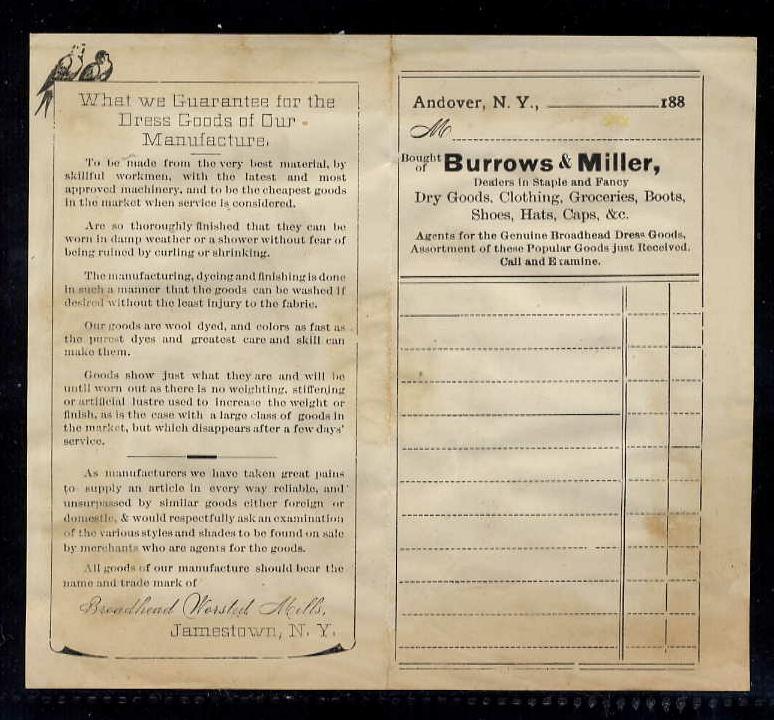 What we Guarantee for the
Dress Goods of Our
Manufacture.
To be made from the very best material, by
skillful workmen, with the latest and most
approved machinery, and to be the cheapest goods
in the market when service is considered.
Are so thoroughly finished that they can be
worn in damp weather or a shower without fear of
being ruined by curling or shrinking.
The manufacturing, dyeing and finishing is done
in such a manner that the goods can be washed if
desired without the least injury to the fabric.
Our goods are wool dyed, and colors as fast as
the purest dyes and greatest care and skill can
make them.
Goods show just what they are and will be
until worn out as there is no weighting, stiffening
or artificial lustre used to increase the weight or
finish, as is the case with a large class of goods in
the market, but which disappears after a few days'
service.
As manufacturers we have taken great pains
to supply an article in every way reliable, and
unsurpassed by similar goods either foreign or
domestic, & would respectfully ask an examination
of the various styles and shades to be found on sale
by merchants who are agents for the goods.
All goods of our manufacture should bear the
name and trade mark of
Broadhead Worsted Mills,
Jamestown, N. Y.
Andover, N. Y., 188
M
Bought of Burrows & Miller,
Dealers in Staple and Fancy
Dry Goods, Clothing, Groceries, Boots,
Shoes, Hats, Caps, &c.
Agents for the Genuine Broadhead Dress Goods.
Assortment of these Popular Goods just Received.
Call and Examine.